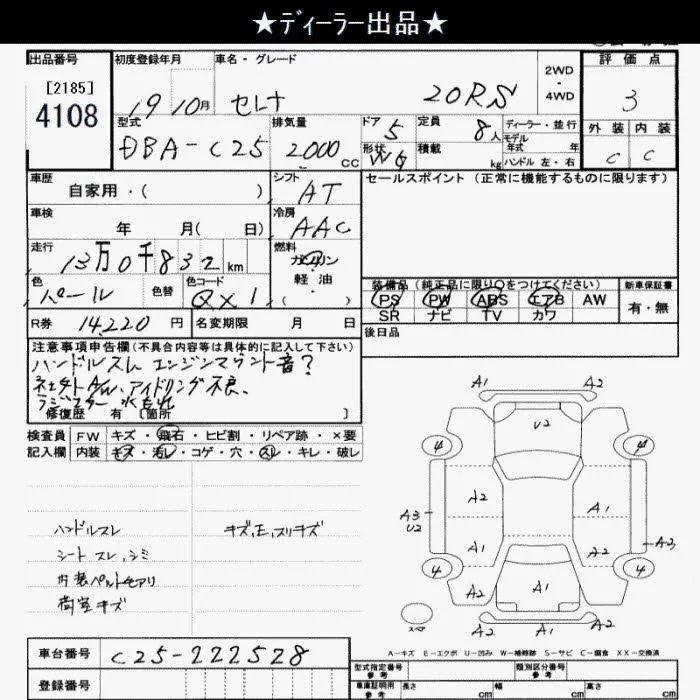 ★ディーラー出品★
出品番号
[2185]
4108
初度登録年月
19 10月
車名・グレード
セレナ 20RS
2WD
・
4WD
評価点
3
外装 内装
C C
型式
DBA-C25
排気量
2000cc
ドア 5
形状 WG
定員 8人
積載 kg
ディーラー・並行
モデル年式 年
ハンドル 左・右
車歴
自家用・( )
シフト
AT
車検
年 月( 日)
冷房
AAC
走行
13万0千832km
燃料
ガソリン
・
軽油
・
( )
色
パール
色替
色コード
QX1
R券 14,220円
名変期限 月 日
セールスポイント(正常に機能するものに限ります)
装備品(純正品に限り○をつけてください)
PS PW ABS エアB AW
SR ナビ TV カワ
新車保証書
有・無
後日品
注意事項申告欄(不具合内容等は具体的に記入して下さい)
ハンドルスレ エンジンマウント音?
アイドリング不良、
ラジエター水もれ
修復歴 有 [箇所 ]
検査員記入欄
FW キズ・飛石・ヒビ割・リペア跡・×要
内装 キズ・汚レ・コゲ・穴・スレ・キレ・破レ
ハンドルスレ
シートスレ、シミ
内装ペットモアリ
荷室キズ
キズ、E、スリキズ
A1 A2
U2
4 4
A2 A1
A3
U2
A1 A2
A2
4 4
A2 A1
A2 A1 A2
スペア
A-キズ E-エクボ U-凹み W-補修跡 S-サビ C-腐食 XX-交換済
車台番号 C25-222528
登録番号
型式指定番号
参考
類別区分番号
参考
車庫証明用
参考
長さ cm 幅 cm 高さ cm